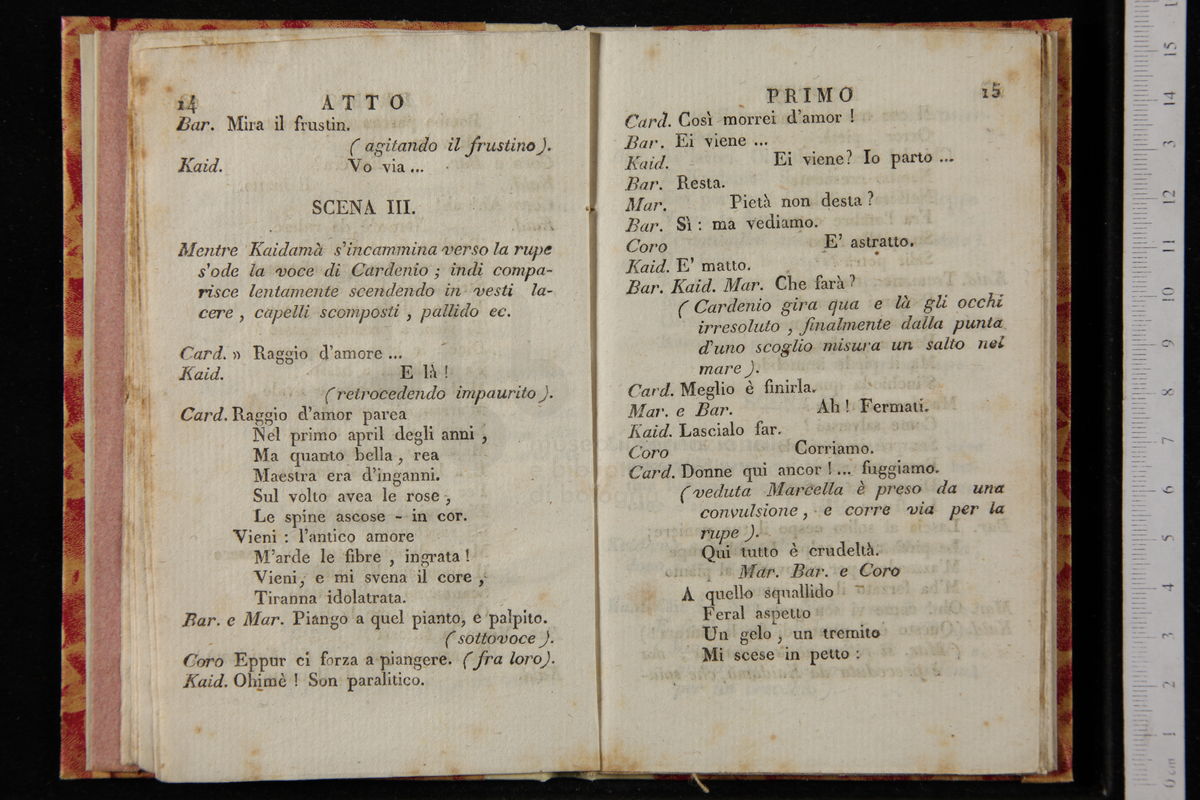 14 ATTO
Bar. Mira il frustin.
( agitando il frustino ).
Kaid. Vo via ...
SCENA III.
Mentre Kaidamà s'incammina verso la rupe
s'ode la voce di Cardenio ; indi compa-
risce lentamente scendendo in vesti la-
cere , capelli scomposti , pallido ec.
Card. » Raggio d'amore ...
Kaid. E là !
( retrocedendo impaurito ).
Card. Raggio d'amor parea
Nel primo april degli anni ,
Ma quanto bella , rea
Maestra era d'inganni.
Sul volto avea le rose ,
Le spine ascose - in cor.
Vieni : l'antico amore
M'arde le fibre , ingrata !
Vieni, e mi svena il core ,
Tiranna idolatrata.
Bar. e Mar. Piango a quel pianto, e palpito.
( sottovoce ).
Coro Eppur ci forza a piangere. ( fra loro).
Kaid. Ohimè ! Son paralitico.
PRIMO 15
Card. Così morrei d'amor !
Bar. Ei viene ...
Kaid. Ei viene? Io parto ...
Bar. Resta.
Mar. Pietà non desta ?
Bar. Sì : ma vediamo.
Coro E' astratto.
Kaid. E' matto.
Bar. Kaid. Mar. Che farà ?
( Cardenio gira qua e là gli occhi
irresoluto , finalmente dalla punta
d'uno scoglio misura un salto nel
mare ).
Card. Meglio è finirla.
Mar. e Bar. Ah ! Fermati.
Kaid. Lascialo far.
Coro Corriamo.
Card. Donne qui ancor ! ... fuggiamo.
( veduta Marcella è preso da una
convulsione , e corre via per la
rupe ).
Qui tutto è crudeltà.
Mar. Bar. e Coro
A quello squallido
Feral aspetto
Un gelo , un tremito
Mi scese in petto :
0 cm 1 2 3 4 5 6 7 8 9 10 11 12 13 14 15